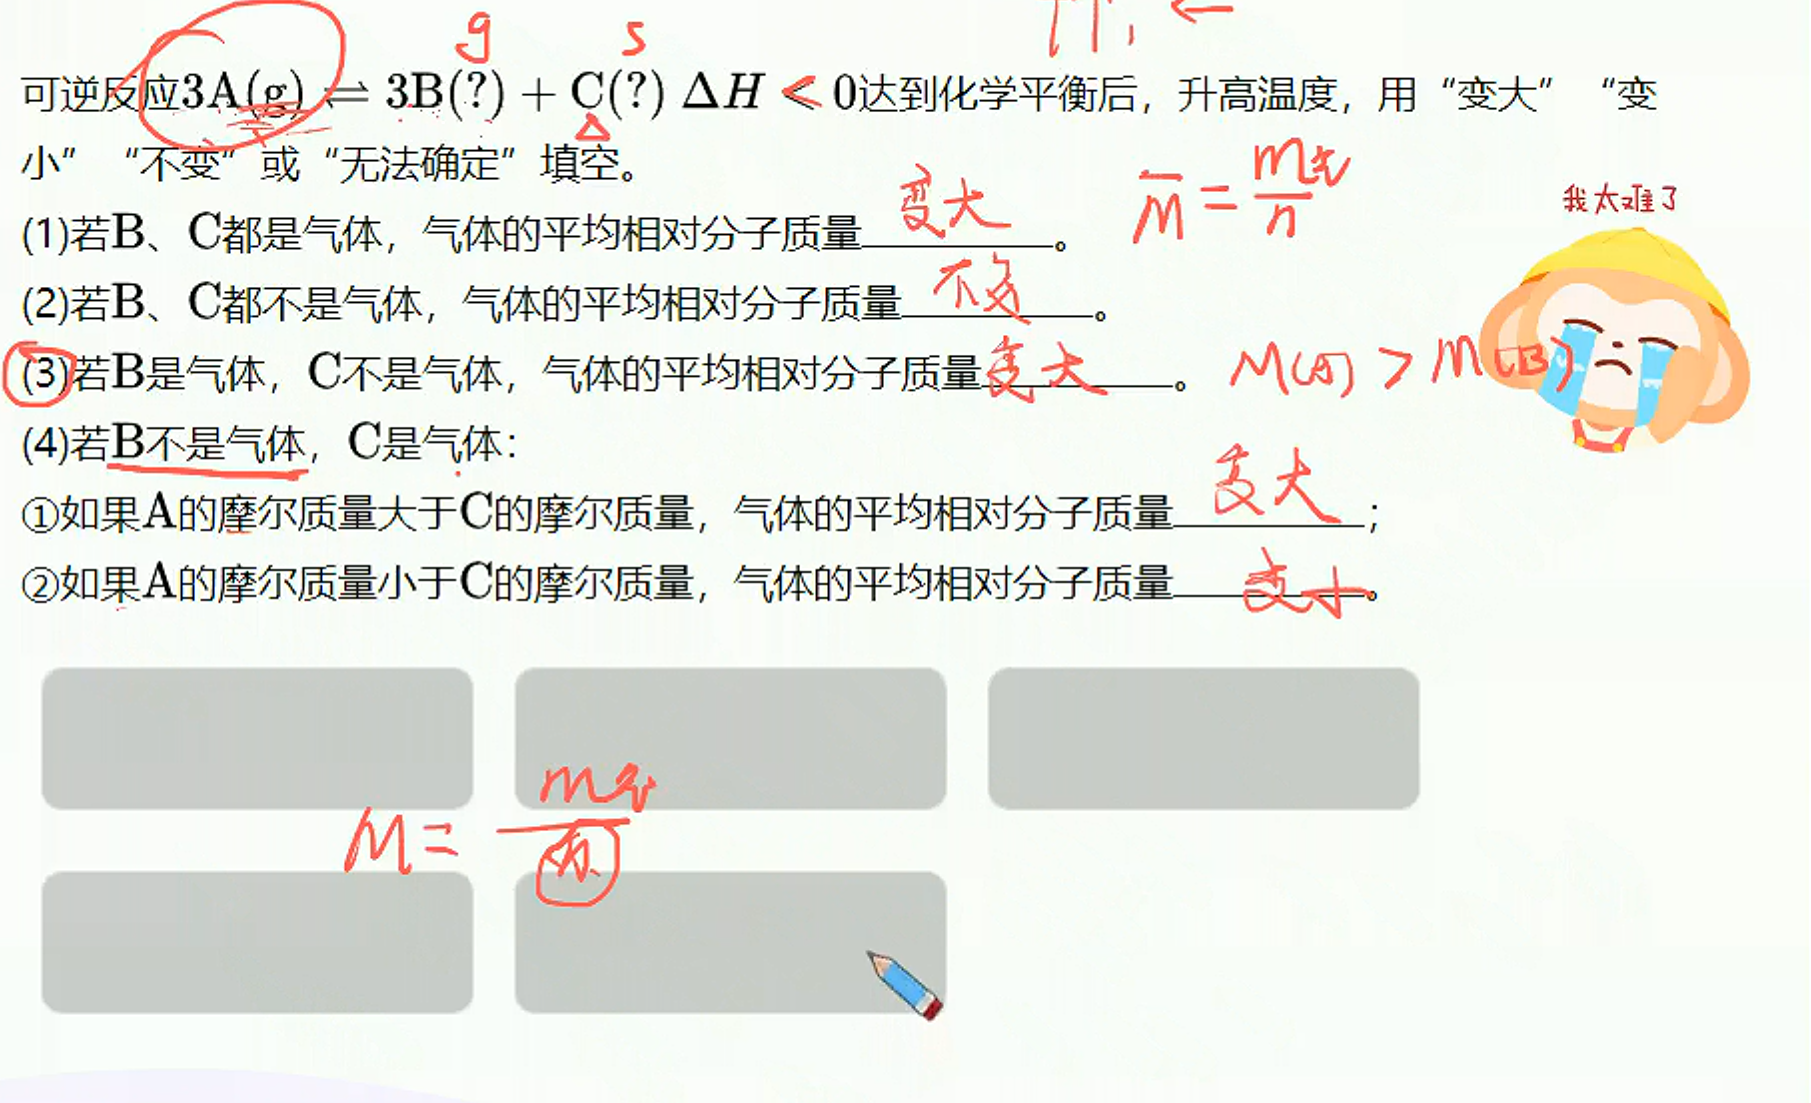 g s
可逆反应3A(g) ⇌ 3B(?) + C(?) ΔH < 0达到化学平衡后，升高温度，用“变大”“变
小”“不变”或“无法确定”填空。
(1)若B、C都是气体，气体的平均相对分子质量变大。
M = m气/n
我太难了
(2)若B、C都不是气体，气体的平均相对分子质量不变。
(3)若B是气体，C不是气体，气体的平均相对分子质量变大。 M(A) > M(B)
(4)若B不是气体，C是气体：
①如果A的摩尔质量大于C的摩尔质量，气体的平均相对分子质量变大；
②如果A的摩尔质量小于C的摩尔质量，气体的平均相对分子质量变小。
M = m气